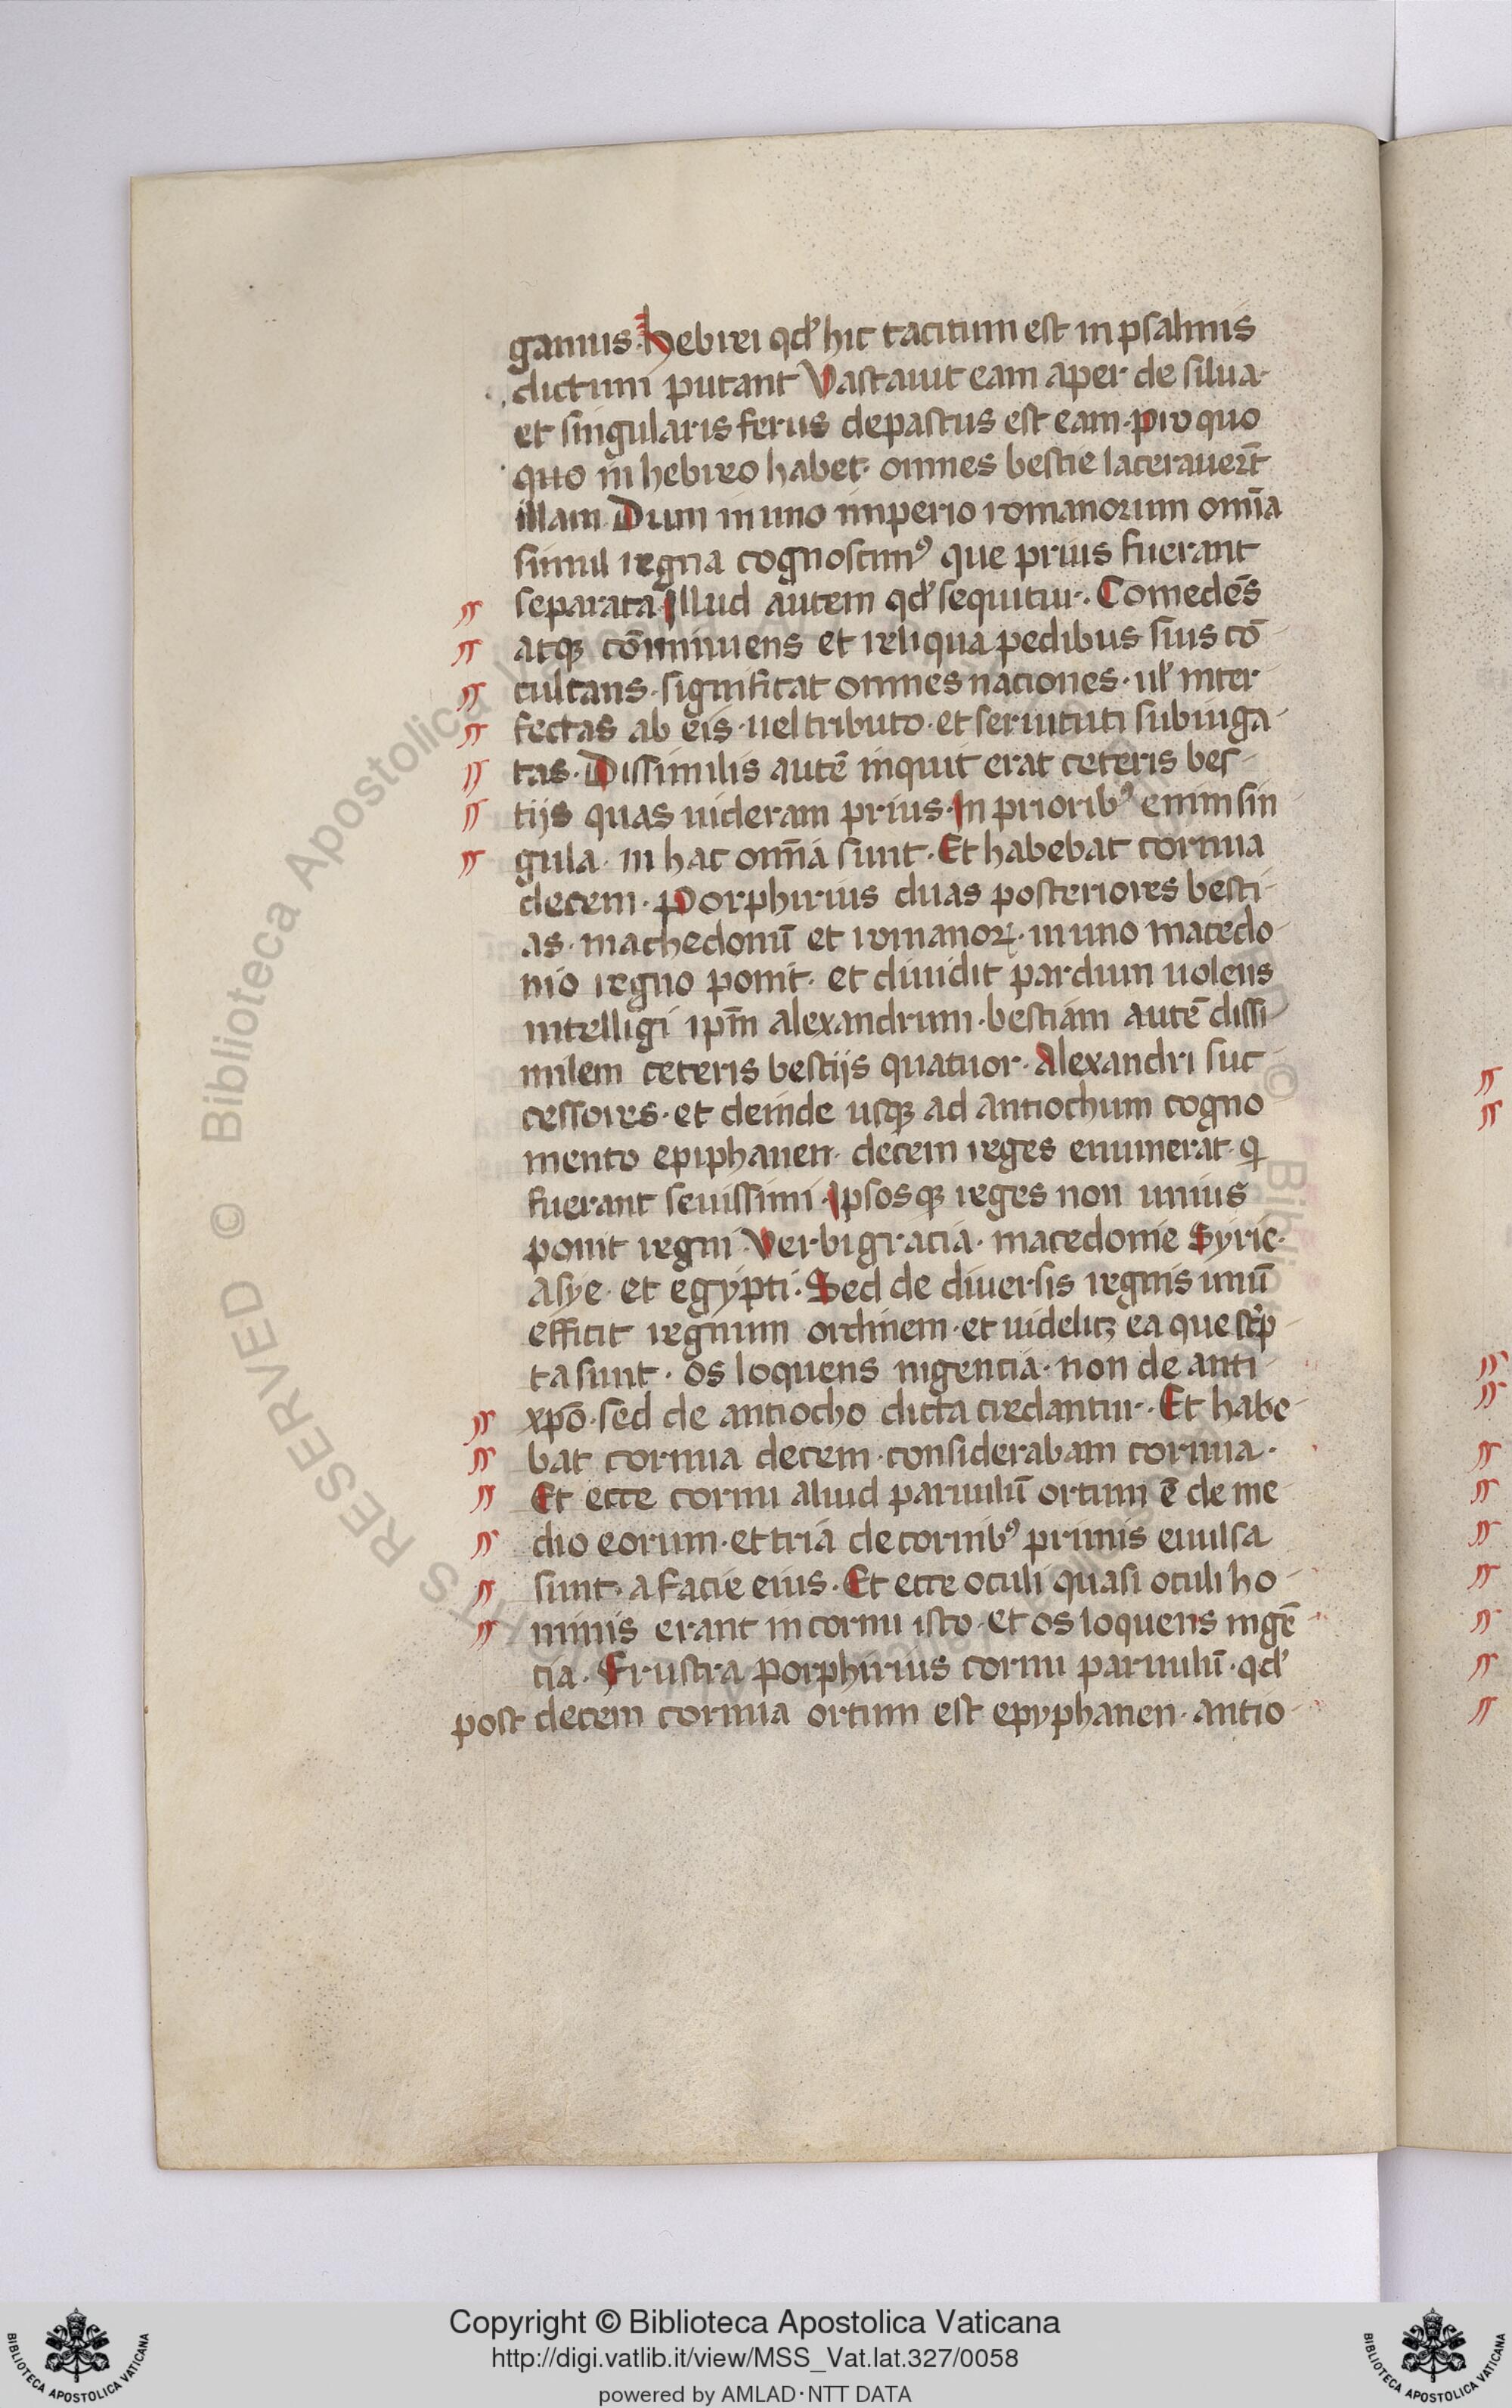 gamus. Hebrei qd' hic tacitum est in psalmis
dictum putant Vastauit eam aper de silua.
et singularis ferus depastus est eam. pro quo
quo in hebreo habet. omnes bestie lacerauer̄t
illam Dum in uno imperio romanorum om̄ia
simul regna cognoscimꝰ que prius fuerant
separata. Illud autem qd' sequitur. Comedēs
atqꝫ cōminuens et reliqua pedibus suis cō
culcans. significat omnes naciones. ul' inter
fectas ab eis. uel tributo. et seruituti subiuga
tas. Dissimilis autē inquit erat ceteris bes
tijs quas uideram prius. In prioribꝰ enim sin
gula. in hac om̄ia sunt. Et habebat cornua
decem. Porphirius duas posteriores besti
as. machedonū et romanoꝝ. in uno macedo
nio regno ponit. et diuidit pardum uolens
intelligi ip̄m alexandrum. bestiam autē dissi
milem ceteris bestijs quatuor. Alexandri suc
cessores. et deinde usqꝫ ad antiochum cogno
mento epiphanen. decem reges enumerat. qi
fuerant seuissimi. Ipsosqꝫ reges non unius
ponit regni. Verbi gracia. macedonie Syrie.
asye. et egypti. Sed de diuersis regnis unū
efficit regnum ordinem. et uidelicꝫ ea que sc̀p
ta sunt. os loquens ingencia. non de anti
xp̄o. sed de antiocho dicta credantur. Et habe
bat cornua decem. considerabam cornua.
Et ecce cornu aliud paruulū ortum ē de me
dio eorum. et tria de cornibꝰ primis euulsa
sunt. a facie eius. Et ecce oculi quasi oculi ho
minis erant in cornu isto. et os loquens ingē
cia. Frustra porphirius cornu paruulū. qd'
post decem cornua ortum est epyphanen. antio
Copyright © Biblioteca Apostolica Vaticana
http://digi.vatlib.it/view/MSS_Vat.lat.327/0058
powered by AMLAD·NTT DATA